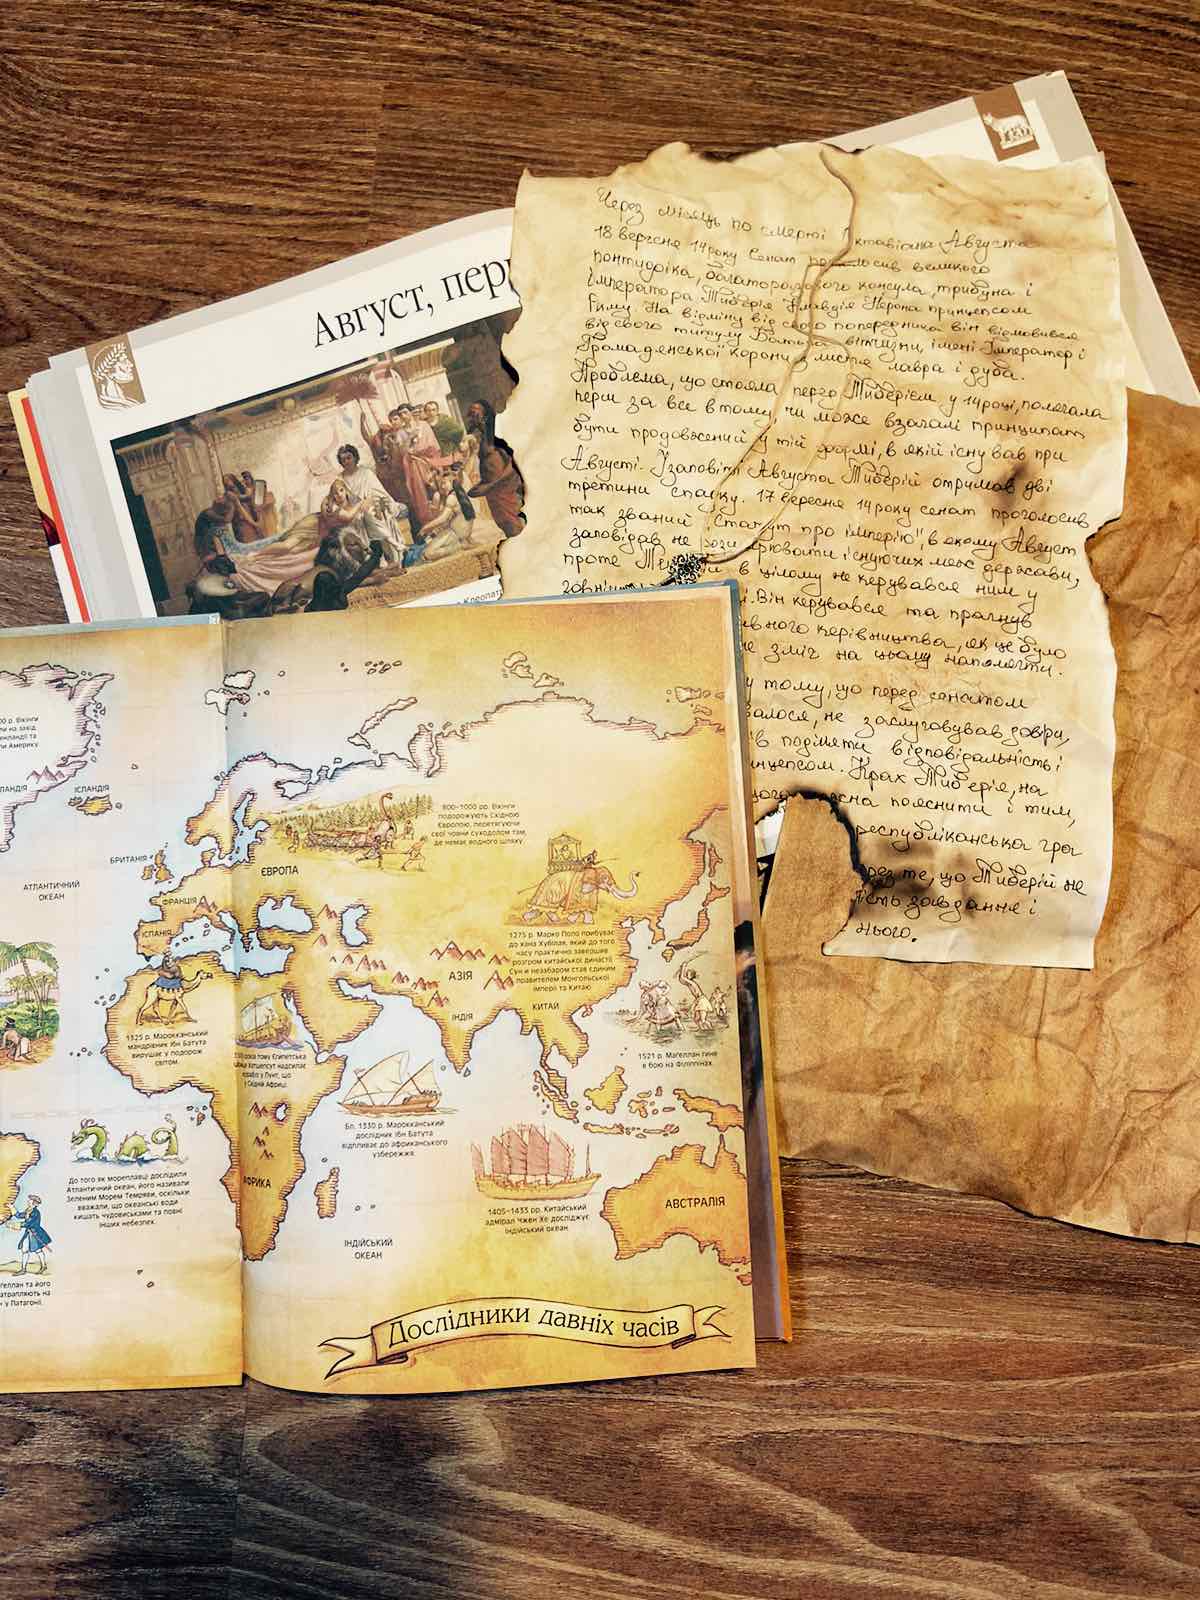 Август, перш
Через місяць по смерті Октавіана Августа
18 вересне 14 року Сенат проголосив великого
понтифіка, багаторазового консула, трибуна і
імператора Тиберія Клавдія Нерона принцепсом
Риму. На відміну від свого попередника він відмовився
від свого титулу Батька вітчизни, імені Імператор і
громадянської корони з листя лавра і дуба.
Проблема, що стояла перед Тиберієм у 14 році, полягала
перш за все в тому, чи може взагалі принципат
бути продовжений у тій формі, в якій існував при
Августі. З заповіту Августа Тиберій отримав дві
третини спадку. 17 вересня 14 року сенат проголосив
так званий "Статут про імперію", в якому Август
заповідав не розширювати існуючих меж держави,
проте в цілому не керувався ним у
і. Він керувався та прагнув
ивного керівництва, як це було
не зміг на цьому наполягти.
у тому, що перед сенатом
валося, не заслуговував довіри,
ів поділяти відповідальність і
нцепсом. Крах Тиберія, на
жна пояснити і тим,
республіканська гра
рез те, що Тиберій не
ість завдання і
нього.
00 р. Вікінги
ли на захід
енландії та
ли Америку.
ЛАНДІЯ
ІСЛАНДІЯ
БРИТАНІЯ
АТЛАНТИЧНИЙ
ОКЕАН
ФРАНЦІЯ
ІСПАНІЯ
ЄВРОПА
800–1000 рр. Вікінги
подорожують Східною
Європою, перетягуючи
свої човни суходолом там,
де немає водного шляху.
1275 р. Марко Поло прибуває
до хана Хубілая, який до того
часу практично завершив
розгром китайської династії
Сун и незабаром став єдиним
правителем Монгольської
імперії та Китаю
АЗІЯ
ІНДІЯ
КИТАЙ
1325 р. Марокканський
мандрівник Ібн Батута
вирушає у подорож
світом.
років тому Єгипетська
Хатшепсут надсилає
кораблі у Пунт, що
у Східній Африці.
1521 р. Магеллан гине
в бою на Філіппінах.
Бл. 1330 р. Марокканський
дослідник Ібн Батута
відпливає до африканського
узбережжя.
До того як мореплавці дослідили
Атлантичний океан, його називали
Зеленим Морем Темряви, оскільки
вважали, що океанські води
кишать чудовиськами та повні
інших небезпек.
АФРИКА
1405–1433 рр. Китайський
адмірал Чжен Хе досліджує
Індійський океан.
АВСТРАЛІЯ
ІНДІЙСЬКИЙ
ОКЕАН
геллан та його
атрапляють на
у Патагонії.
Дослідники давніх часів